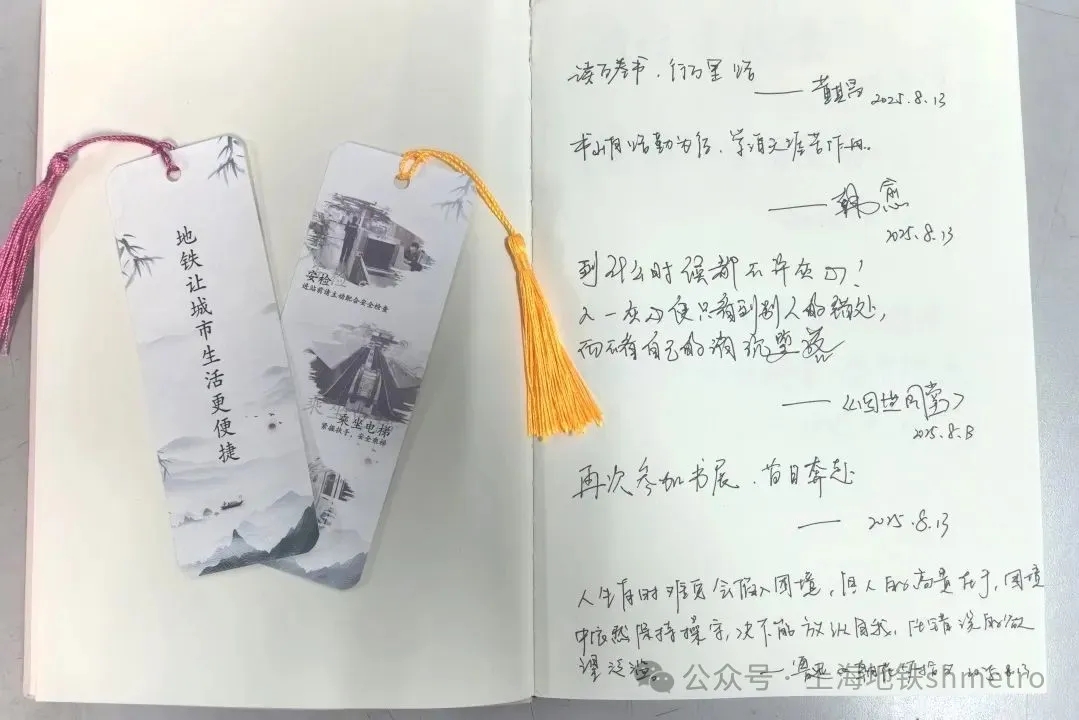 地铁让城市生活更便捷
安检
进站前请主动配合安全检查
乘坐电梯
紧握扶手,安全乘梯
读万卷书,行万里路
—— 2025.8.13
书山有路勤为径,学海无涯苦作舟。
—— 韩愈
2025.8.13
到什么时候都不许灰心!
人一灰心便只看到别人的错处,
而不看自己的消沉堕落
——《四世同堂》
2025.8.13
再次参加书展,奔赴
—— 2025.8.13
人生有时难免会陷入困境,但人的高贵在于,困境
中依然保持操守,决不能放纵自我,任错误的欲
望泛滥。
—— 2025.8.13
公众号·上海地铁shmetro